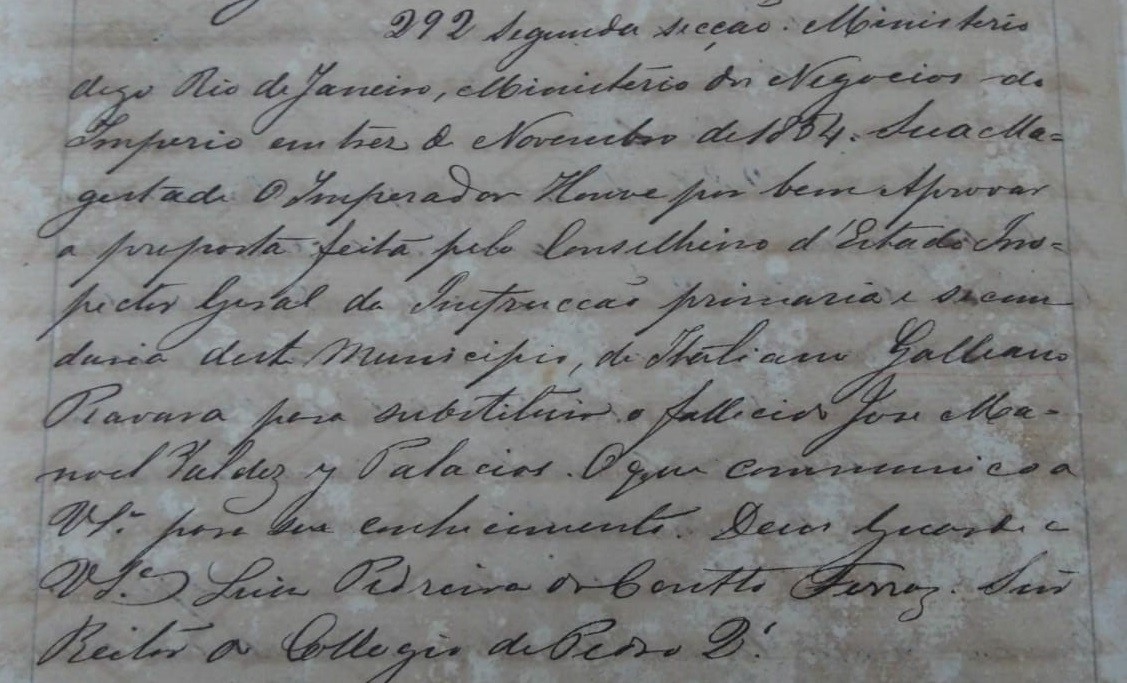 292 Segunda secção. Ministerio
digo Rio de Janeiro, Ministerio dos Negocios do
Imperio em trez de Novembro de 1854. Sua Ma-
gestade O Imperador Houve por bem Aprovar
a proposta feita pelo Conselheiro d'Estado Ins-
pector Geral da Instrucção primaria e secun
daria deste Municipio, do Italiano Galleano
Ravara para substituir o fallecido José Ma-
noel Valdez y Palacios. O que communico a
VSª para seu conhecimento. Deus Guarde a
VSª Luiz Pedreira do Coutto Ferraz. Snr
Reitor do Collegio de Pedro 2º.